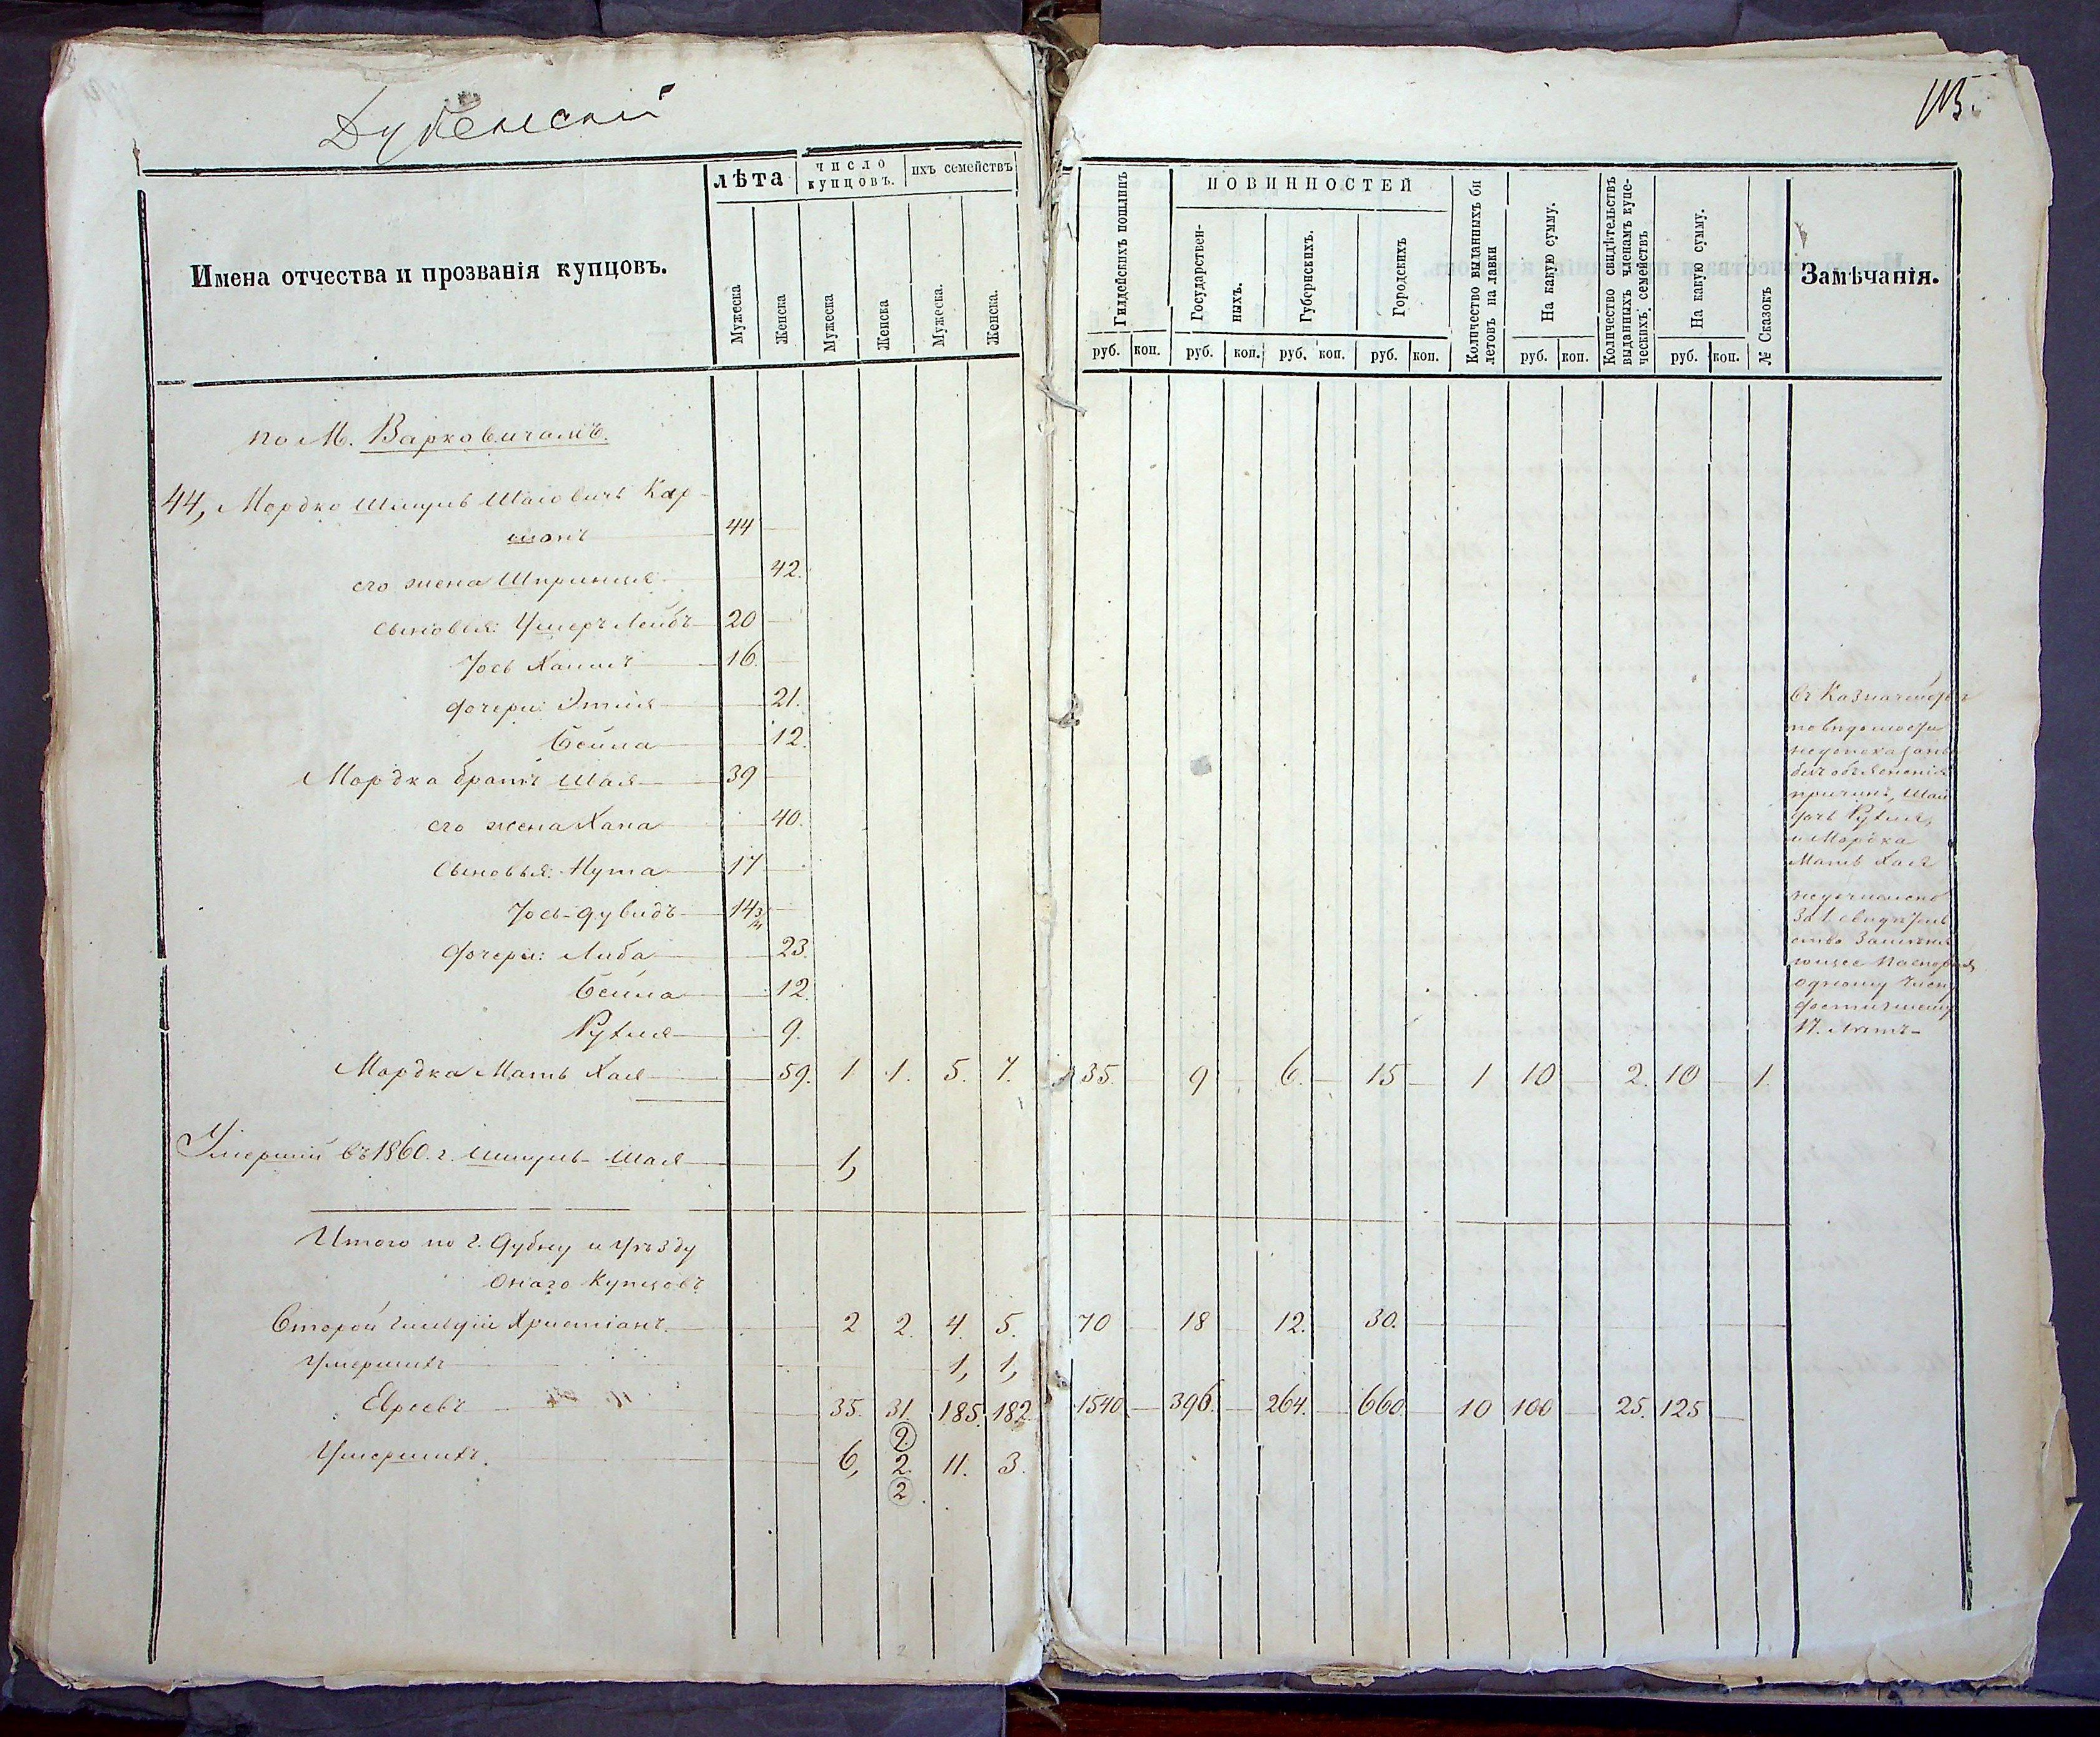 Дубенскій
113.
Имена отчества и прозванія купцовъ.
лѣта
число купцовъ.
ихъ семействъ
Мужеска
Женска
Мужеска
Женска
Мужеска.
Женска.
Гилдейскихъ пошлинъ
ПОВИННОСТЕЙ
Государствен-
ныхъ.
Губернскихъ.
Городскихъ
Количество выданныхъ би
летовъ на лавки
На какую сумму.
Количество свидѣтельствъ
выданныхъ членамъ купе-
ческихъ семействъ
На какую сумму.
№ Сказокъ
Замѣчанія.
руб. коп. руб. коп. руб. коп. руб. коп. руб. коп. руб. коп.
по М. Варковичамъ.
44, Мордко Шмуль Шаіовичъ Кар-
манъ 44
его жена Шпринця 42.
сыновья: Умеръ Лейбъ 20
Іось Хаимъ 16.
дочери: Этля 21.
Бейла 12.
Мордка братъ Шая 39
его жена Хана 40.
сыновья: Нута 17
Іось-Дувидъ 14
дочери: Либа 23.
Бейла 12.
Рухля 9.
Мордка Мать Хая 59. 1 1. 5. 7. 35. 9 6. 15 1 10 2. 10 1.
Умершій въ 1860. г. Шмуль Шая 1,
Итого по г. Дубну и уѣзду
онаго Купцовъ
Второй гильдіи Христіанъ. 2 2. 4. 5. 70 18 12. 30.
Умершихъ 1, 1,
Евреевъ 35. 31. 185. 182 1540 396. 264. 660. 10 100 25. 125
2
Умершихъ. 6, 2. 11. 3.
2
недопоказаны
безъ объясненія
причинъ, Шаи
дочь Рухля,
и Мордка
Мать Хая
одному
17. лѣтъ-